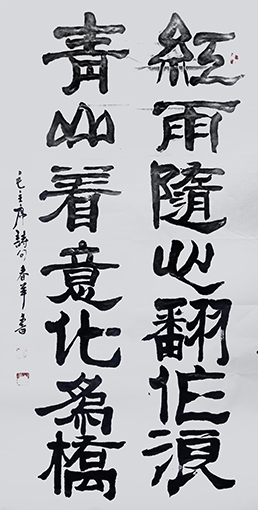 紅雨隨心翻作浪
青山着意化為橋
毛主席詩句春華書